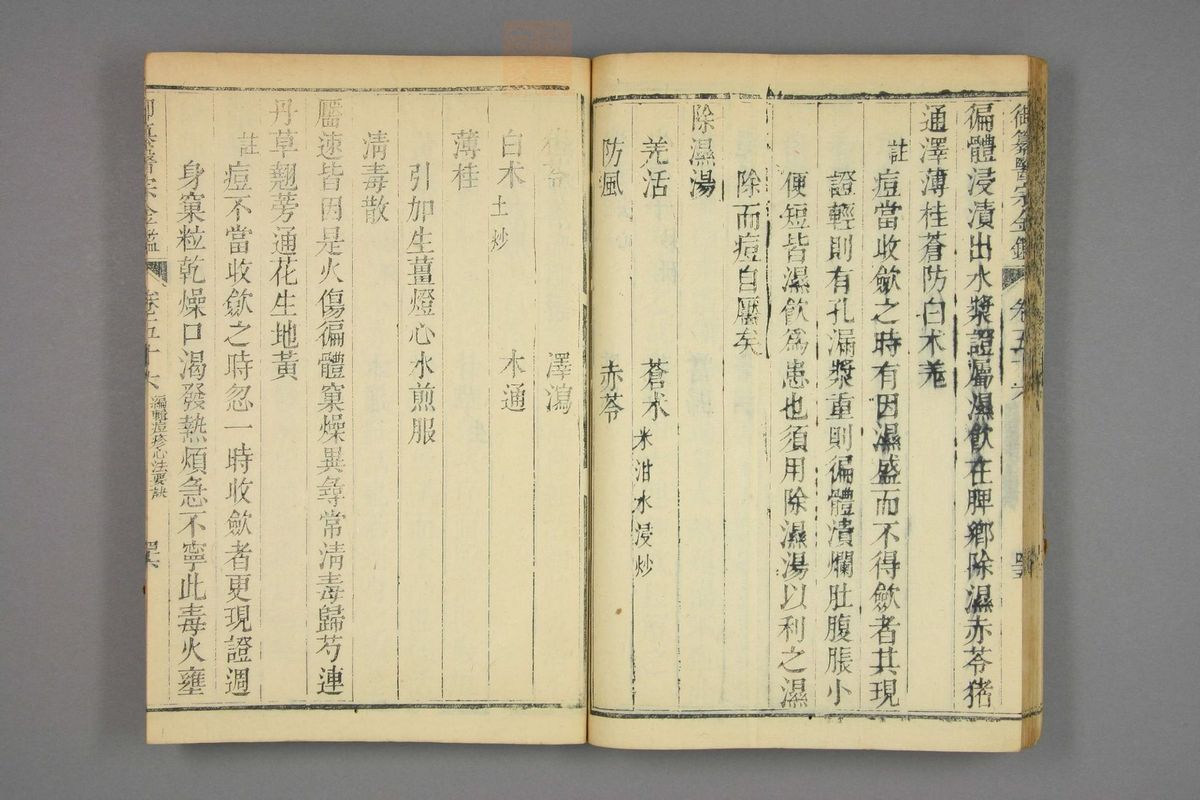 御纂醫宗金鑑 卷五十六
徧體浸漬出水漿證屬濕飲在脾鄉除濕赤苓猪
通澤薄桂蒼防白朮羌
註 痘當收歛之時有因濕盛而不得歛者其現
證輕則有孔漏漿重則徧體潰爛肚腹脹小
便短皆濕飲爲患也須用除濕湯以利之濕
除而痘自靨矣
除濕湯
羗活 蒼朮 米泔水浸炒
防風 赤苓
澤瀉
白朮 土炒 木通
薄桂
引加生薑燈心水煎服
清毒散
靨速皆因是火傷徧體窠燥異尋常清毒歸芍連
丹草翹蒡通花生地黃
註 痘不當收歛之時忽一時收歛者更現證週
身窠粒乾燥口渴發熱煩急不寧此毒火壅
御纂醫宗金鑑 卷五十六 編輯痘疹心法要訣